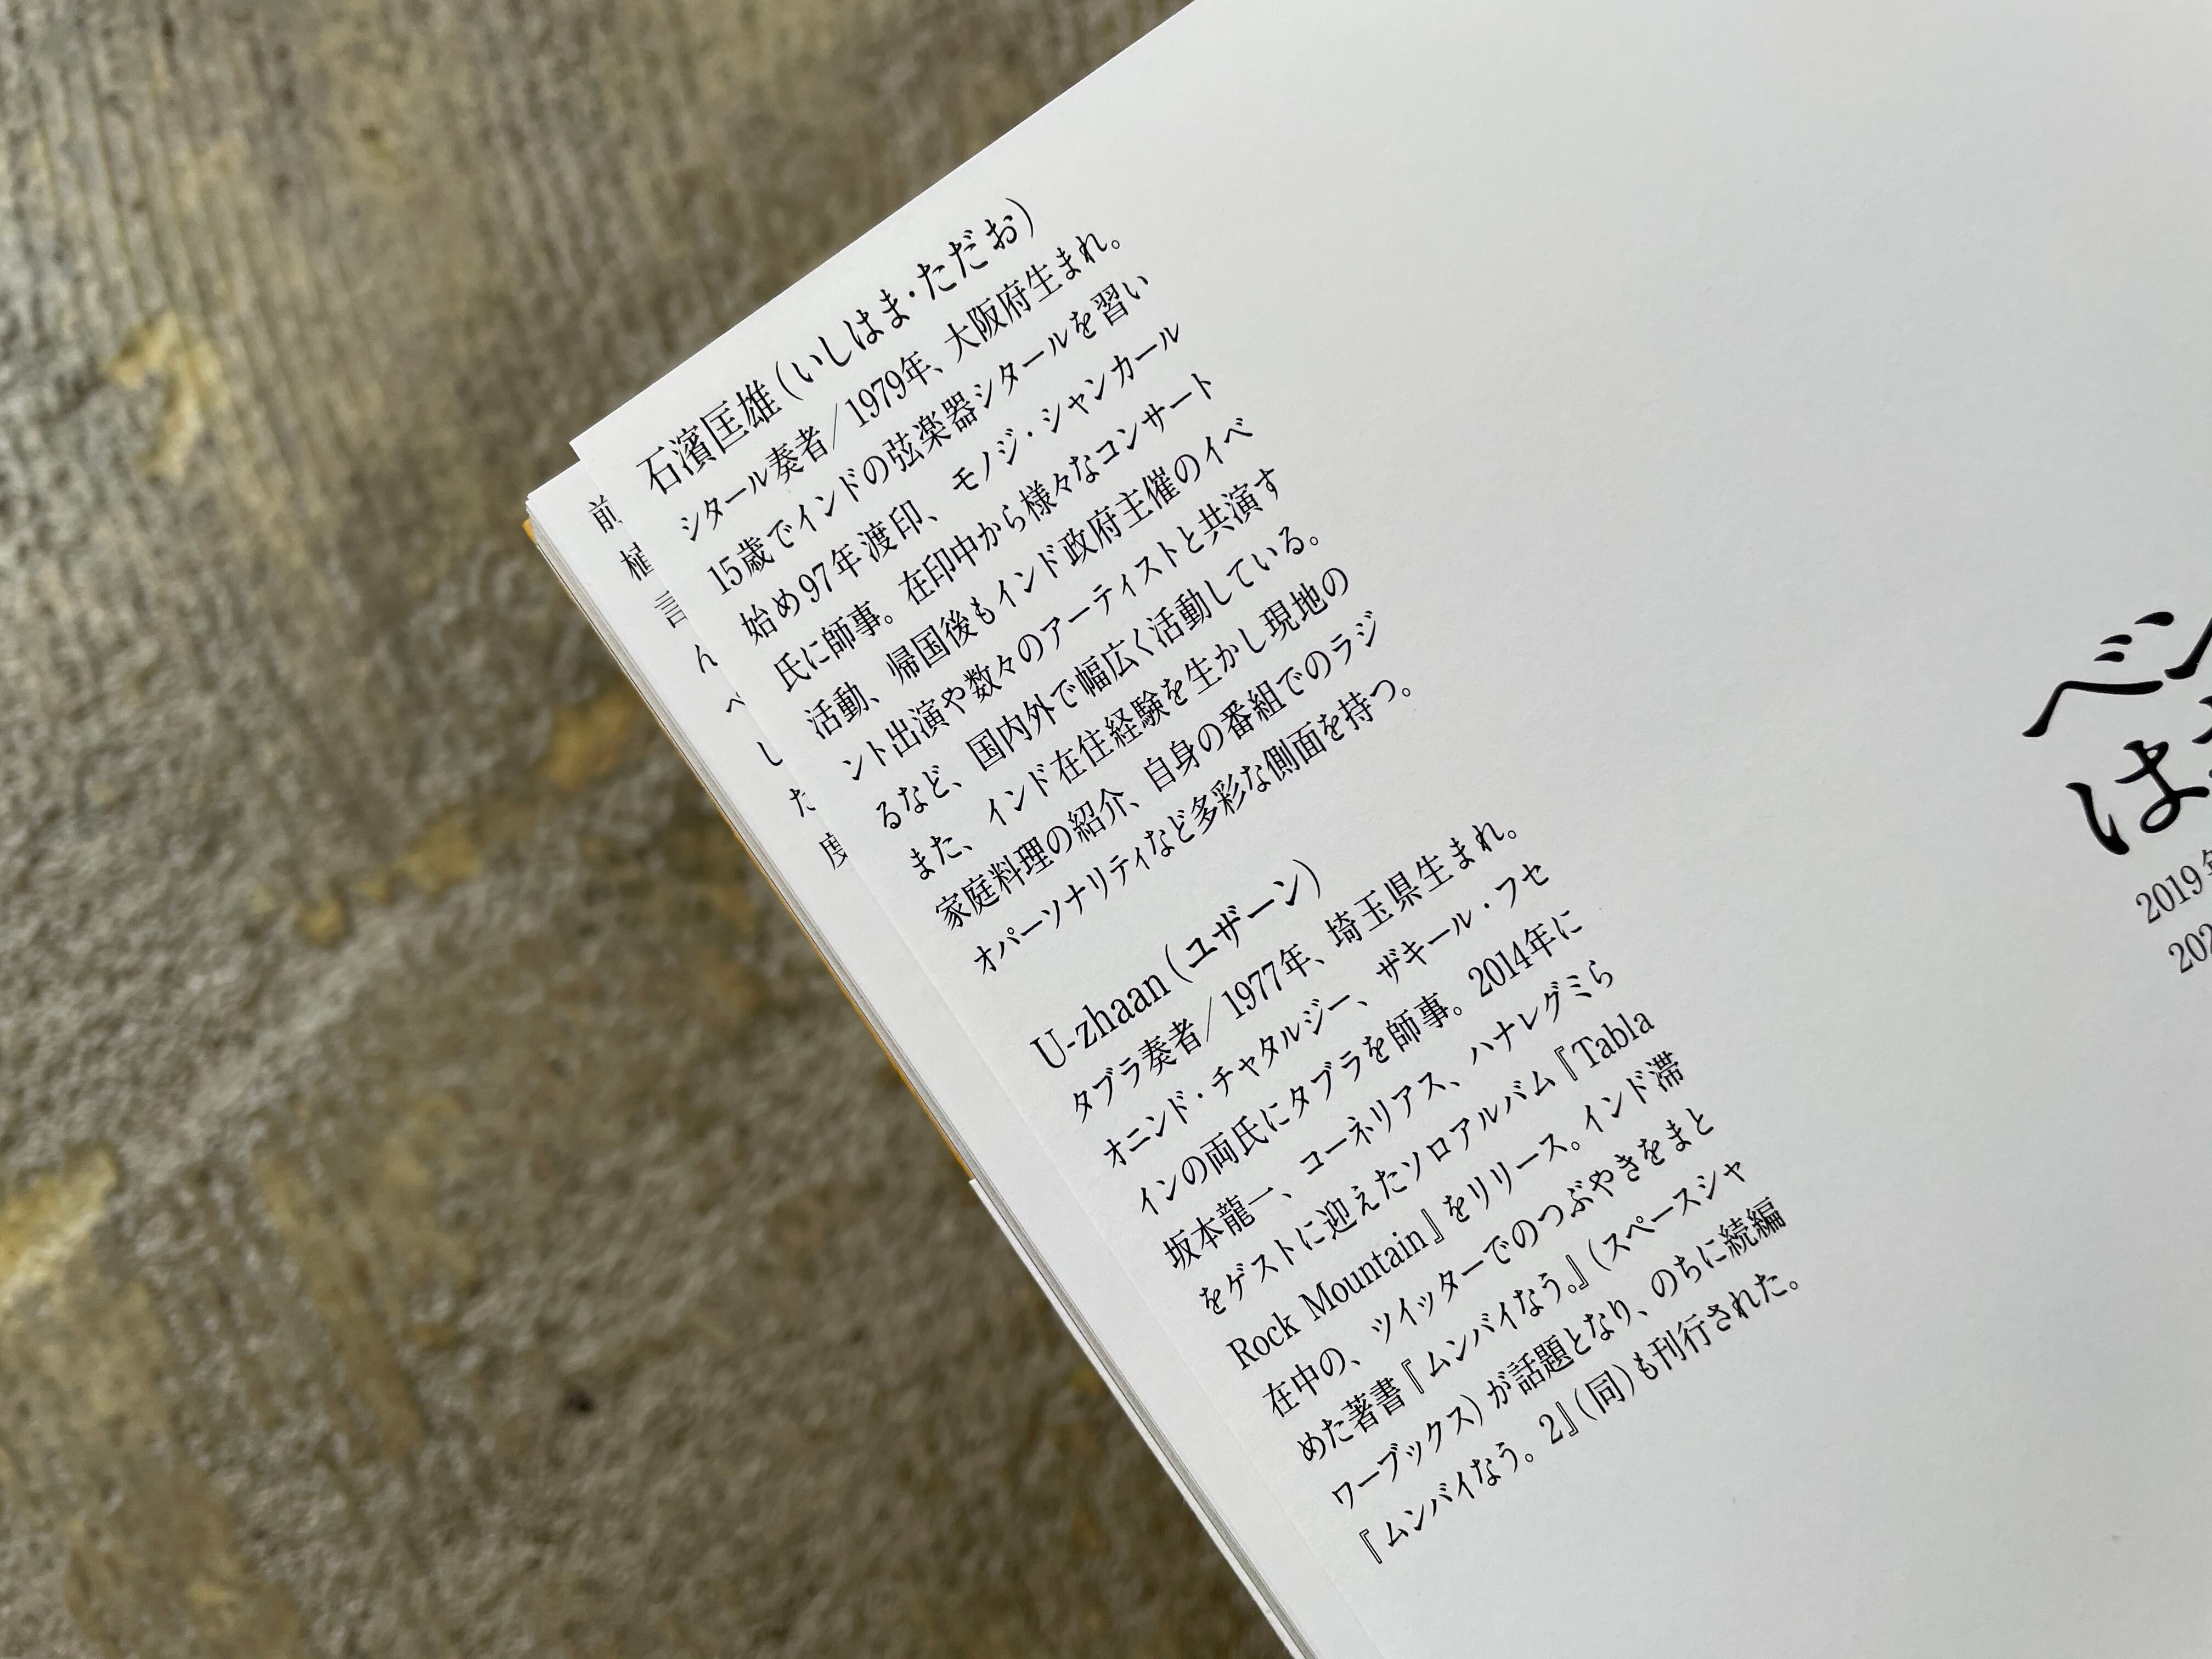 石濱匡雄（いしはま・ただお）
シタール奏者／1979年、大阪府生まれ。
15歳でインドの弦楽器シタールを習い
始め97年渡印、モノジ・シャンカール
氏に師事。在印中から様々なコンサート
活動、帰国後もインド政府主催のイベ
ント出演や数々のアーティストと共演す
るなど、国内外で幅広く活動している。
また、インド在住経験を生かし現地の
家庭料理の紹介、自身の番組でのラジ
オパーソナリティなど多彩な側面を持つ。
U-zhaan（ユザーン）
タブラ奏者／1977年、埼玉県生まれ。
オニンド・チャタルジー、ザキール・フセ
インの両氏にタブラを師事。2014年に
坂本龍一、コーネリアス、ハナレグミら
をゲストに迎えたソロアルバム『Tabla
Rock Mountain』をリリース。インド滞
在中の、ツイッターでのつぶやきをまと
めた著書『ムンバイなう。』（スペースシャ
ワーブックス）が話題となり、のちに続編
『ムンバイなう。2』（同）も刊行された。
前
植
言
ん
べ
し
た
度
ベン
は
2019
202